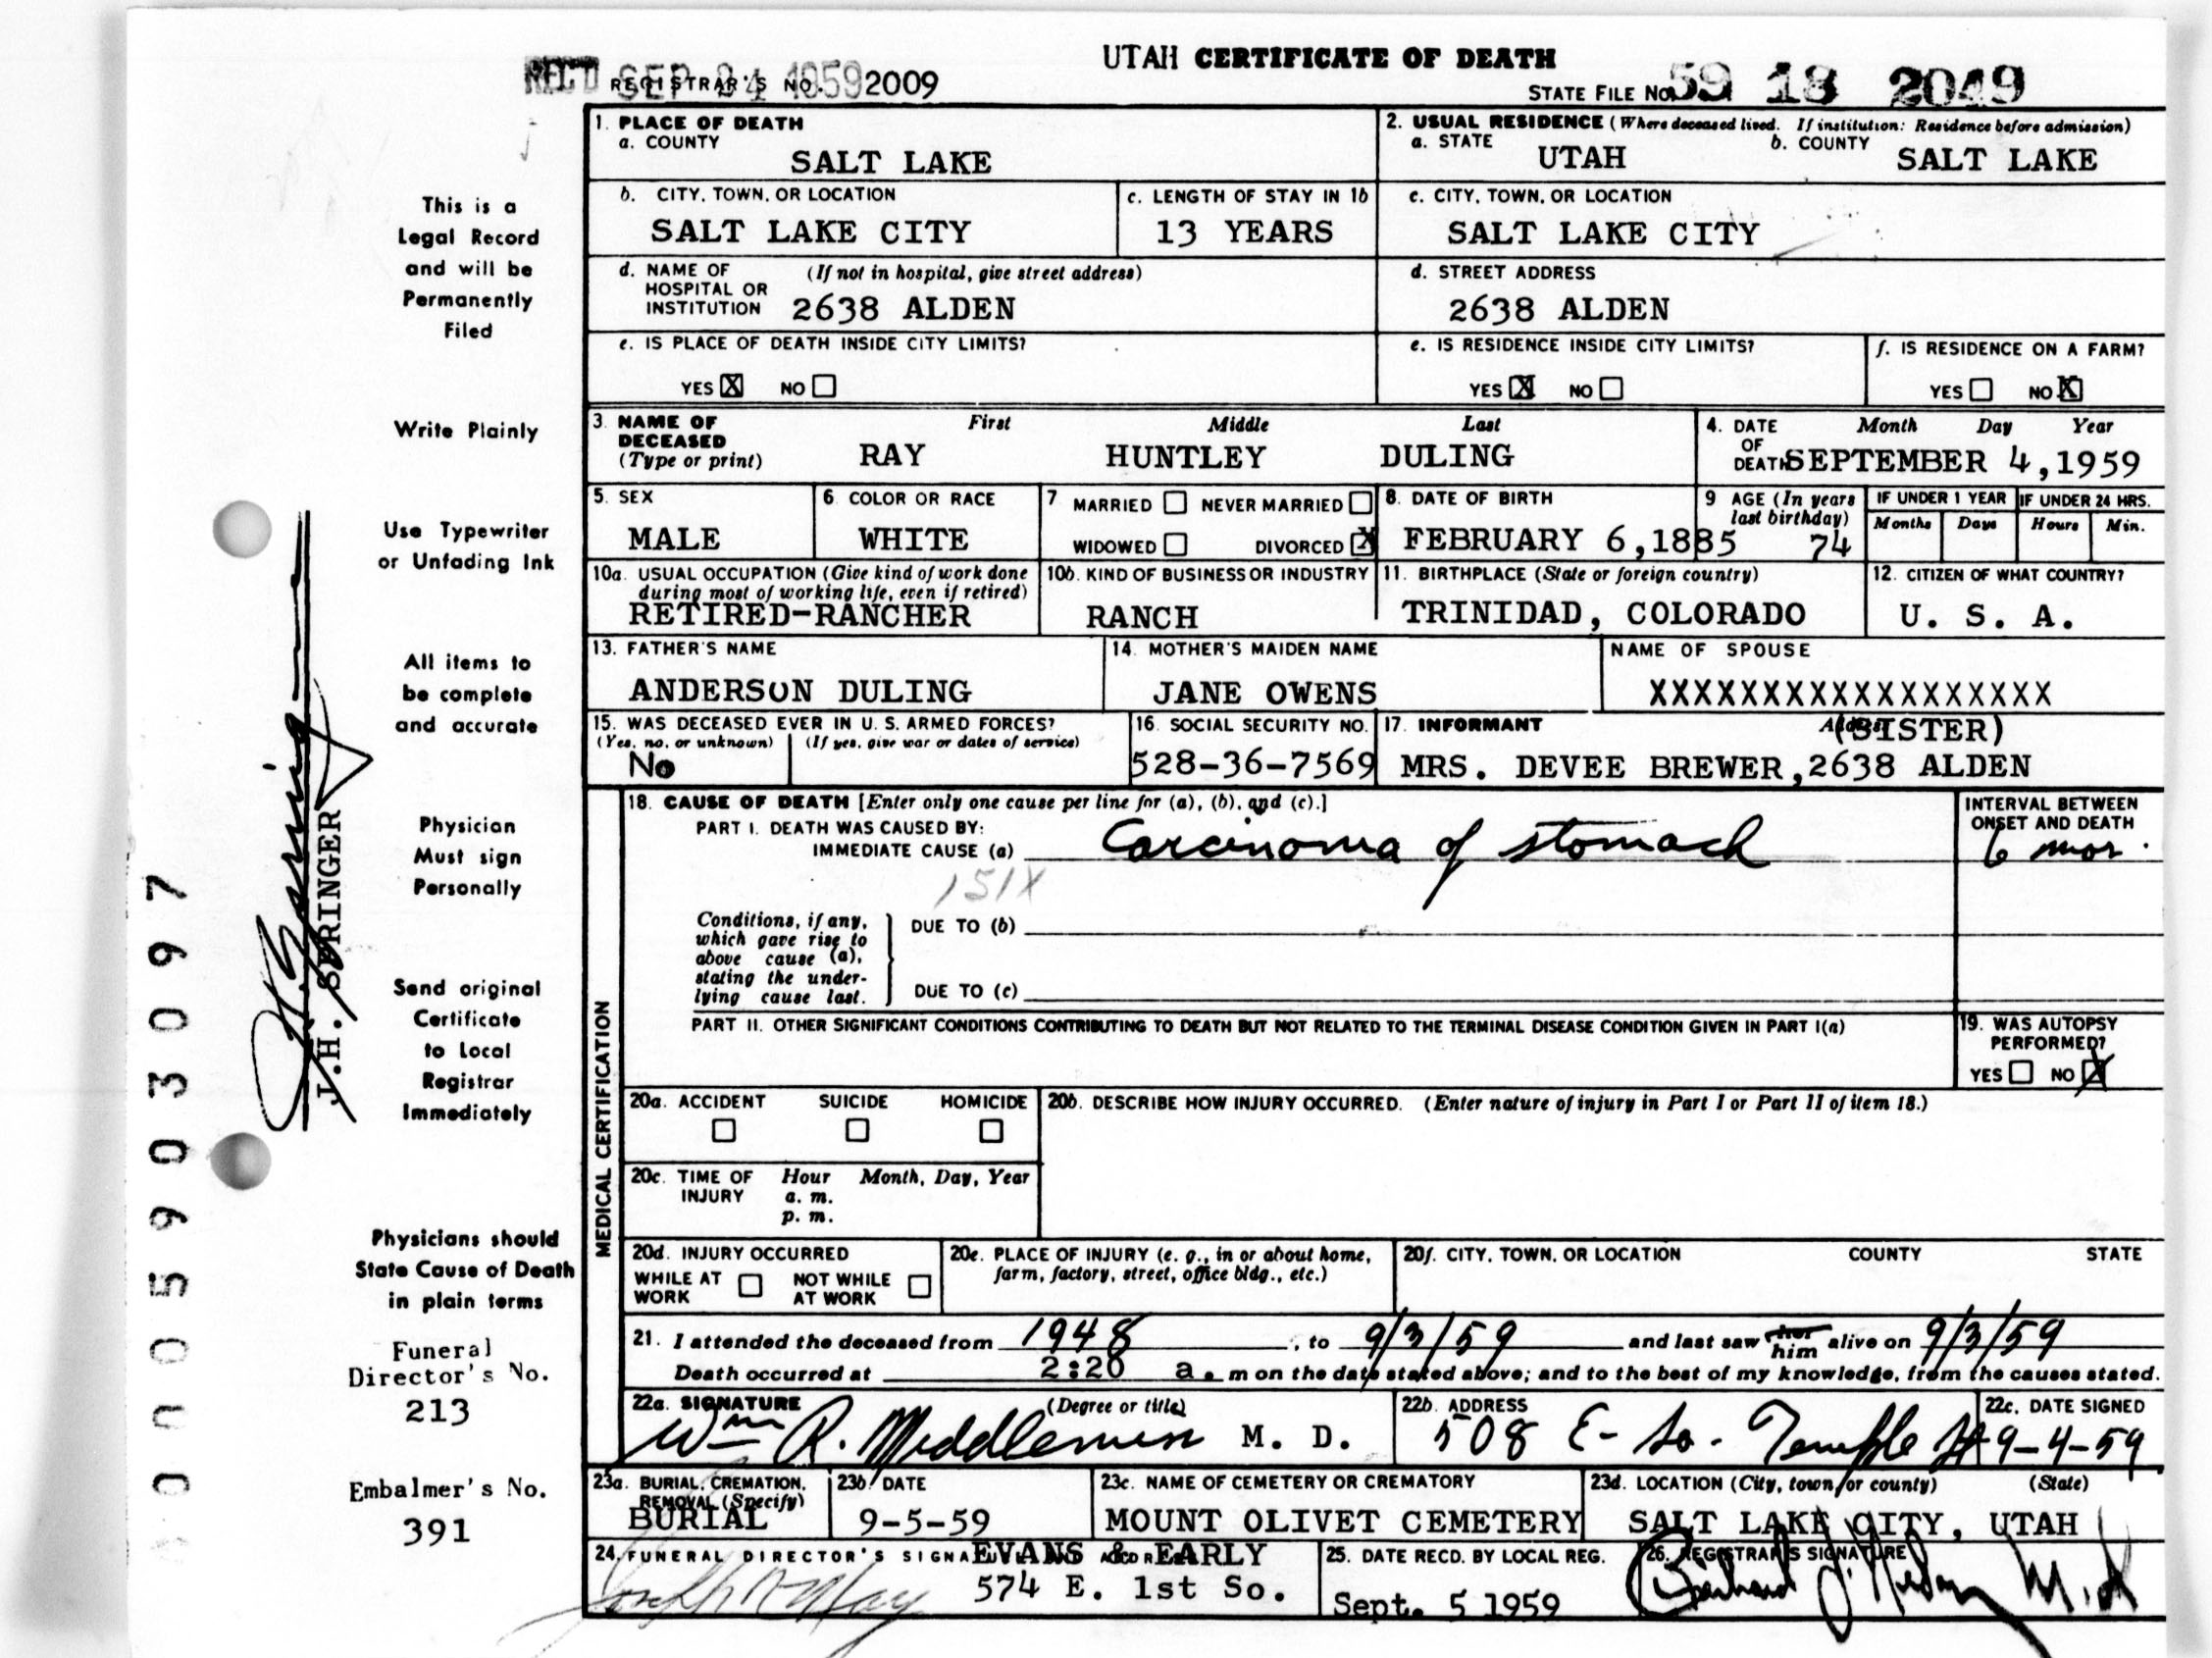 UTAH CERTIFICATE OF DEATH
REC'D SEP 24 1959
REGISTRAR'S NO. 2009
STATE FILE NO. 59 18 2049
1. PLACE OF DEATH
a. COUNTY
SALT LAKE
2. USUAL RESIDENCE (Where deceased lived. If institution: Residence before admission)
a. STATE UTAH b. COUNTY SALT LAKE
b. CITY, TOWN, OR LOCATION
SALT LAKE CITY
c. LENGTH OF STAY IN 1b
13 YEARS
c. CITY, TOWN, OR LOCATION
SALT LAKE CITY
d. NAME OF HOSPITAL OR INSTITUTION (If not in hospital, give street address)
2638 ALDEN
d. STREET ADDRESS
2638 ALDEN
e. IS PLACE OF DEATH INSIDE CITY LIMITS?
YES X NO
e. IS RESIDENCE INSIDE CITY LIMITS?
YES X NO
f. IS RESIDENCE ON A FARM?
YES NO X
3. NAME OF DECEASED (Type or print)
First Middle Last
RAY HUNTLEY DULING
4. DATE OF DEATH Month Day Year
SEPTEMBER 4,1959
5. SEX
MALE
6. COLOR OR RACE
WHITE
7 MARRIED NEVER MARRIED
WIDOWED DIVORCED X
8. DATE OF BIRTH
FEBRUARY 6,1885
9 AGE (In years last birthday)
74
IF UNDER 1 YEAR
Months Days
IF UNDER 24 HRS.
Hours Min.
10a. USUAL OCCUPATION (Give kind of work done during most of working life, even if retired)
RETIRED-RANCHER
10b. KIND OF BUSINESS OR INDUSTRY
RANCH
11. BIRTHPLACE (State or foreign country)
TRINIDAD, COLORADO
12. CITIZEN OF WHAT COUNTRY?
U. S. A.
13. FATHER'S NAME
ANDERSON DULING
14. MOTHER'S MAIDEN NAME
JANE OWENS
NAME OF SPOUSE
XXXXXXXXXXXXXXXXXX
15. WAS DECEASED EVER IN U. S. ARMED FORCES?
(Yes, no, or unknown) (If yes, give war or dates of service)
No
16. SOCIAL SECURITY NO.
528-36-7569
17. INFORMANT Address
(SISTER)
MRS. DEVEE BREWER,2638 ALDEN
MEDICAL CERTIFICATION
18. CAUSE OF DEATH [Enter only one cause per line for (a), (b), and (c).]
PART I. DEATH WAS CAUSED BY:
IMMEDIATE CAUSE (a) Carcinoma of stomach
151X
INTERVAL BETWEEN ONSET AND DEATH
6 mos.
Conditions, if any, which gave rise to above cause (a), stating the under-lying cause last.
DUE TO (b)
DUE TO (c)
PART II. OTHER SIGNIFICANT CONDITIONS CONTRIBUTING TO DEATH BUT NOT RELATED TO THE TERMINAL DISEASE CONDITION GIVEN IN PART I(a)
19. WAS AUTOPSY PERFORMED?
YES NO X
20a. ACCIDENT SUICIDE HOMICIDE
20b. DESCRIBE HOW INJURY OCCURRED. (Enter nature of injury in Part I or Part II of item 18.)
20c. TIME OF INJURY Hour Month, Day, Year
a. m.
p. m.
20d. INJURY OCCURRED
WHILE AT WORK NOT WHILE AT WORK
20e. PLACE OF INJURY (e. g., in or about home, farm, factory, street, office bldg., etc.)
20f. CITY, TOWN, OR LOCATION COUNTY STATE
21. I attended the deceased from 1948, to 9/3/59 and last saw her him alive on 9/3/59
Death occurred at 2:20 a. m on the date stated above; and to the best of my knowledge, from the causes stated.
22a. SIGNATURE (Degree or title)
Wm R. Middlemiss M. D.
22b. ADDRESS
508 E- So. Temple St
22c. DATE SIGNED
9-4-59
23a. BURIAL, CREMATION, REMOVAL (Specify)
BURIAL
23b. DATE
9-5-59
23c. NAME OF CEMETERY OR CREMATORY
MOUNT OLIVET CEMETERY
23d. LOCATION (City, town, or county) (State)
SALT LAKE CITY, UTAH
24. FUNERAL DIRECTOR'S SIGNATURE
EVANS & EARLY
574 E. 1st So.
25. DATE RECD. BY LOCAL REG.
Sept. 5 1959
26. REGISTRAR'S SIGNATURE
This is a
Legal Record
and will be
Permanently
Filed
Write Plainly
Use Typewriter
or Unfading Ink
All items to
be complete
and accurate
Physician
Must sign
Personally
Send original
Certificate
to Local
Registrar
Immediately
Physicians should
State Cause of Death
in plain terms
Funeral
Director's No.
213
Embalmer's No.
391
J.H. SPRINGER
0005903097